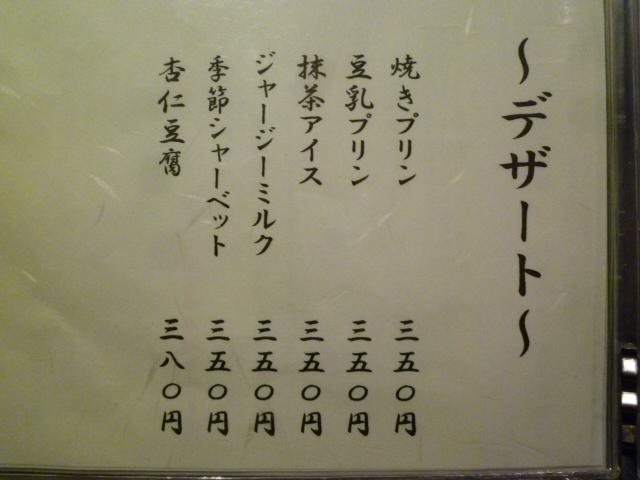 ～デザート～
焼きプリン 三五〇円
豆乳プリン 三五〇円
抹茶アイス 三五〇円
ジャージーミルク 三五〇円
季節シャーベット 三五〇円
杏仁豆腐 三八〇円